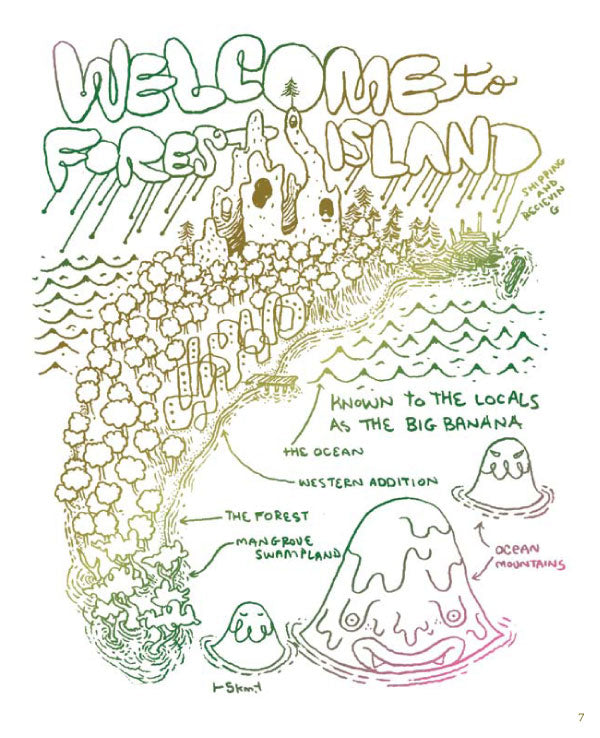 WELCOME to
FOREST ISLAND
SHIPPING
AND
RECIEVIN
G
ISLAND
KNOWN TO THE LOCALS
AS THE BIG BANANA
THE OCEAN
WESTERN ADDITION
THE FOREST
MANGROVE
SWAMPLAND
OCEAN
MOUNTAINS
7